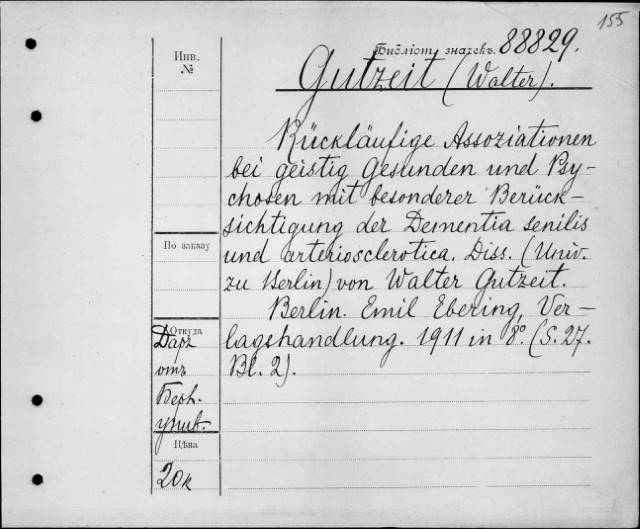 155
Библіот. значекъ. 88829.
Инв. №
Gutzeit (Walter).
Rückläufige Assoziationen
bei geistig Gesunden und Psy-
chosen mit besonderer Berück-
sichtigung der Dementia senilis
und arteriosclerotica. Diss. (Univ.
zu Berlin) von Walter Gutzeit.
Berlin. Emil Ebering, Ver-
lagshandlung. 1911 in 8°. (S. 27.
Bl. 2).
По заказу
Откуда
Даръ
отъ
Берл.
унив.
Цѣна
20к